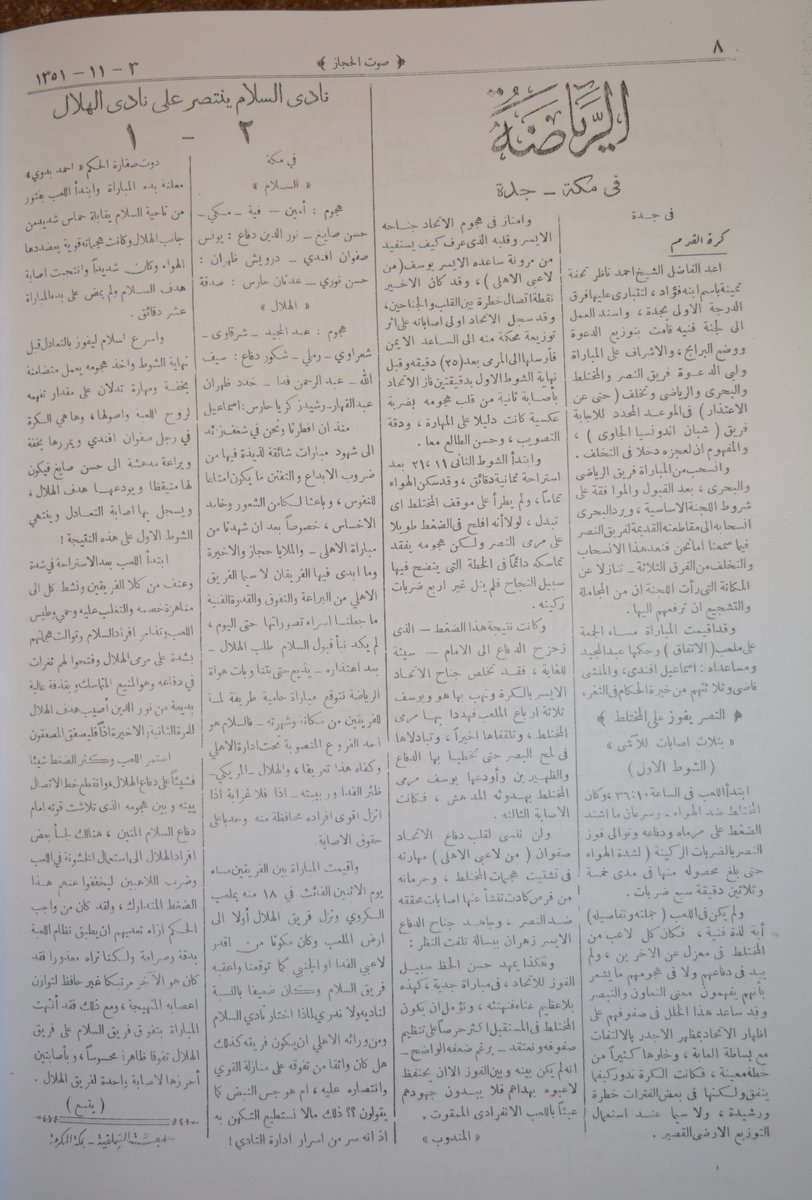 ٨
﴿ صوت الحجاز ﴾
٣ – ١١ – ١٣٥١
الرياضة
فى مكة – جدة
فى جدة
كرة القدم
اعد الفاضل الشيخ احمد ناظر تحفة
ثمينة باسم ابنه فؤاد، لتتبارى عليها فرق
الدرجة الاولى بجدة، واسند العمل
الى لجنة فنيه قامت بتوزيع الدعوة
ووضع البرامج، والاشراف على المباراة
ولبى الدعوة فريق النصر والمختلط
والبحرى والرياضى وتخلف (حتى عن
الاعتذار) فى الموعد المحدد للاجابة
فريق (شبان اندونسيا الجاوى)،
والمفهوم ان لعجزه دخلا فى التخلف.
وانسحب من المباراة فريق الرياضى
والبحرى، بعد القبول والموافقة على
شروط اللجنة الاساسية، ويرد البحرى
انسحابه الى مقاطعته القديمة لفريق النصر
فيما سمعنا اما نحن فنعد هذا الانسحاب
والتخلف من الفرق الثلاثة – تنازلا عن
المكانة التى رأت اللجنة ان من المجاملة
والتشجيع ان ترفعهم اليها.
وقد اقيمت المباراة مساء الجمعة
على ملعب (الاتفاق) وحكمها عبد المجيد
ومساعداه: اسماعيل افندى، والمنشى
قاضى وثلاثتهم من خيرة الحكام فى الثغر.
﴿ النصر يفوز على المختلط ﴾
« بثلاث اصابات للاشى »
(الشوط الاول)
ابتدأ اللعب فى الساعة ١٠:٣٦، وكان
المختلط ضد الهواء، وسرعان ما اشتد
الضغط على مرماه ودفاعه وتوالى فوز
النصر بالضربات الركينة (لشدة الهواء
حتى بلغ محصوله منها فى مدى خمسة
وثلاثين دقيقة سبع ضربات.
ولم يكن فى اللعب (جملته وتفاصيله)
أية لذة فنية، فكان كل لاعب من
المختلط فى معزل عن الاخرين، ولم
يبد فى دفاعهم ولا فى هجومهم ما يشعر
بأنهم يفهمون معنى التعاون والتبصر
وقد ساعد هذا الخلل فى صفوفهم على
اظهار الاتحاد بمظهر الاجدر بالالتفات
مع بساطة العابة، وخلوها كثيراً من
خطة معينة، فكانت الكرة تدور كيفما
يتفق ولكنها فى بعض الفترات خطرة
ورشيدة، ولا سيما عند استعمال
التوزيع الارضى القصير.
وامتاز فى هجوم الاتحاد جناحه
الايسر وقلبه الذى عرف كيف يستفيد
من مرونة ساعده الايسر يوسف (من
لاعبى الاهلى)، وقد كان الاخير
نقطة اتصال خطرة بين القلب والجناحين،
وقد سجل الاتحاد اولى اصاباته على اثر
توزيعة محكمة منه الى الساعد الايمن
فأرسلها الى المرمى بعد (٢٥) دقيقه وقبل
نهاية الشوط الاول بدقيقتين فاز الاتحاد
بأصابة ثانية من قلب هجومه بضربة
عكسية كانت دليلا على المهارة، ودقة
التصويب، وحسن الطالع معا.
وابتدأ الشوط الثانى ١١،٢١ بعد
استراحة ثمانية دقائق، وقد سكن الهواء
تماماً، ولم يطرأ على موقف المختلط اى
تبدل، لولا أنه افلح فى الضغط طويلا
على مرمى النصر ولكن هجومه يفقد
تماسكه دائماً فى الخطة التى يتضح فيها
سبيل النجاح فلم ينل غير اربع ضربات
ركينه.
وكانت نتيجة هذا الضغط – الذى
زحزح الدفاع الى الامام – سيئة
للغاية، فقد تخلص جناح الاتحاد
الايسر بالكرة ونهب بها هو ويوسف
ثلاثة ارباع الملعب فهددا بها مرمى
المختلط، وتلقفاها اخيراً، وتبادلاها
فى لمح البصر حتى تخطيا بها الدفاع
والظهيرين وأودعها يوسف مرمى
المختلط بهدوئه المدهش، فكانت
الاصابة الثالثه.
ولن ننسى لقلب دفاع الاتحاد
صفوان (من لاعبى الاهلى) مهارته
فى تشتيت هجمات المختلط، وحرمانه
من فرص كادت تنشأ عنها اصابات محققه
ضد النصر، وجاهد جناح الدفاع
الايسر زهران ببسالة تلفت النظر:
وهكذا يمهد حسن الحظ سبيل
الفوز للاتحاد، فى مباراة جدية، كهذه
بلا عظيم عناء فنهنئه، ونؤمل ان يكون
المختلط فى المستقبل اكثر حرصا على تنظيم
صفوفه ونعتقد – برغم ضعفه الواضح –
انه لم يكن بينه وبين الفوز الاان يحتفظ
لاعبوه بهدائهم فلا يبددون جهودهم
عبثاً باللعب الانفرادى الممقوت.
« المندوب »
نادى السلام ينتصر على نادى الهلال
٢ – ١
فى مكة
« السلام »
هجوم: أمين – فية – مكي –
حسن صايغ – نور الدين دفاع: يونس
صفوان افندي – درويش ظهران:
حسن نوري – عدنان حارس: صدقة
« الهلال »
هجوم: عبد المجيد – شرقاوى –
شعراوي – رملي – شكور دفاع: سيف
الله – عبد الرحمن فدا – خدد ظهران
عبد القهار – رشيد زكريا حارس: اسماعيل
منذ ان افطرنا ونحن في شغف زائد
الى شهود مبارات شائقة لذيذة فيها من
ضروب الابداع والتفنن ما يكون امتاعا
للنفوس، وباعثا لكامن الشعور وخامد
الاحساس، خصوصاً بعد ان شهدنا من
مباراة الاهلى – والملايا حجاز والاخيرة
وما ابدى فيها الفريقان لا سيما الفريق
الاهلي من البراعة والتفوق والقدرة الفنية
ما جعلنا اسراء تصوراتها حتى اليوم،
لم يكد نبأ قبول السلام طلب الهلال –
بعد اعتذاره – يذيع حتى بتنا وبات هواة
الرياضة نتوقع مباراة حامية طريفة لما
للفريقين من مكانة وشهرة – فالسلام هو
أحد الفروع المنضوية تحت ادارة الاهلي
وكفاه هذا تعريفا، والهلال – المريكي –
ظئر الفدا وربيبته – اذا فلا غرابة اذا
انزل اقوى افراده محافظة منه وحدبا على
حقوق الاصابة.
واقيمت المباراة بين الفريقين مساء
يوم الاثنين الفائت في ١٨ منه بملعب
السكروي ونزل فريق الهلال أولا الى
ارض الملعب وكان مكونا من اقدر
لاعبي الفدا او الجنبي كما توقعنا واعقبه
فريق السلام وكان ضعيفا بالنسبة
لناديه ولا ندري لماذا اختار نادي السلام
ومن ورائه الاهلي ان يكون فريقه كذلك
هل كان واثقا من تفوقه على منازلة القوي
وانتصاره عليه، ام هو جس النبض كما
يقولون؟؟ ذلك مالا نستطيع التكهن به
اذ انه سر من اسرار ادارة النادي!
دوت صفارة الحكم « احمد بدوي »
معلنة بدء المباراة وابتدأ اللعب بفتور
من ناحية السلام يقابلة حماس شديد من
جانب الهلال وكانت هجماته قوية يعضدها
الهواء وكان شديداً وانتحبت اصابة
هدف السلام ولم يمض على بدء المباراة
عشر دقائق.
واسرع السلام ليفوز بالتعادل قبل
نهاية الشوط واخذ هجومه يعمل متضامنة
بخفة ومهارة تدلان على مقدار تفهمه
لروح اللعبة واصولها، وها هي الكرة
في رجل صفوان افندي ويمررها بخفة
وبراعة مدهشة الى حسن صايغ فيكون
لها متيقظا ويودعها هدف الهلال،
ويسجل بها اصابة التعادل وينتهي
الشوط الاول على هذه النتيجة!
ابتدأ اللعب بعد الاستراحة في شدة
وعنف من كلا الفريقين ونشط كل الى
مناهزة خصمه والتغلب عليه، وحمي وطيس
اللعب وتذامر افراد السلام وتوالت هجماتهم
بشدة على مرمى الهلال وفتحوا لهم ثغرات
في دفاعه وهو المنيع المتماسك وبقذفة عالية
بديعة من نور الدين أصيب هدف الهلال
للمرة الثانية والاخيرة اذاً فليصفق المصفقون
استمر اللعب وكثر الضغط شيئا
فشيئاً على دفاع الهلال، وانقطع خط الاتصال
بينه وبين هجومه الذى تلاشت قوته امام
دفاع السلام المتين، هنالك لجأ بعض
افراد الهلال الى استعمال الخشونة فى اللعب
وضرب اللاعبين ليخففوا عنهم هذا
الضغط المتدارك، ولقد كان من واجب
الحكم ازاء تعديهم ان يطبق نظام اللعبة
بدقة وصرامة ولكنا نراه معذورا فقد
كان هو الآخر مرتبكا غير حافظ لتوازن
اعصابه المتهيجة، ومع ذلك فقد أنتهت
المباراة بتفوق فريق السلام على فريق
الهلال تفوقا ظاهرا محسوساً، وبأصابتين
أحرزها لاصابة واحدة لفريق الهلال.
(يتبع)
المطبعة السلفية – بمكة المكرمة